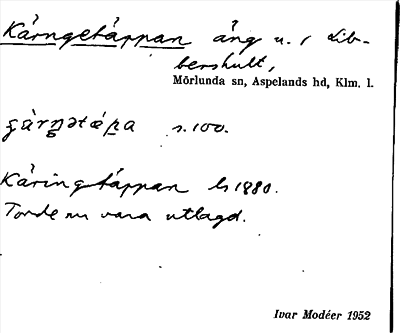 Kärngetäppan äng u. / Lib-
bershult,
Mörlunda sn, Aspelands hd, Klm. l.
s. 100.
Käringtäppan Ls 1880.
Torde nu vara utlagd.
Ivar Modéer 1952